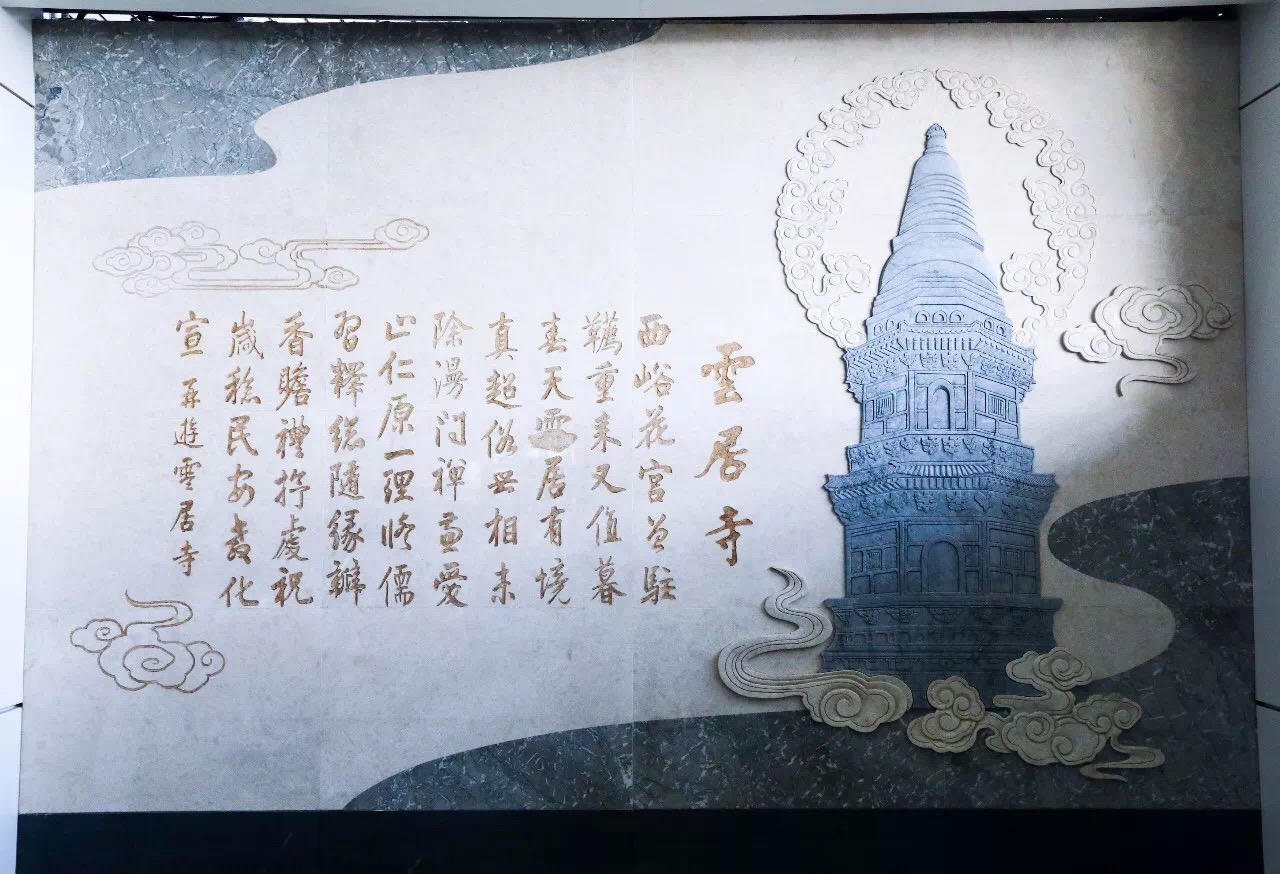 雲居寺
西峪花宮曾駐
韉重來又值暮
春天雲居有境
真超俗無相未
除漫問禪兼愛
止仁原一理修儒
習釋總隨緣瓣
香瞻禮抒虔祝
歲稔民安教化
宣 再遊雲居寺